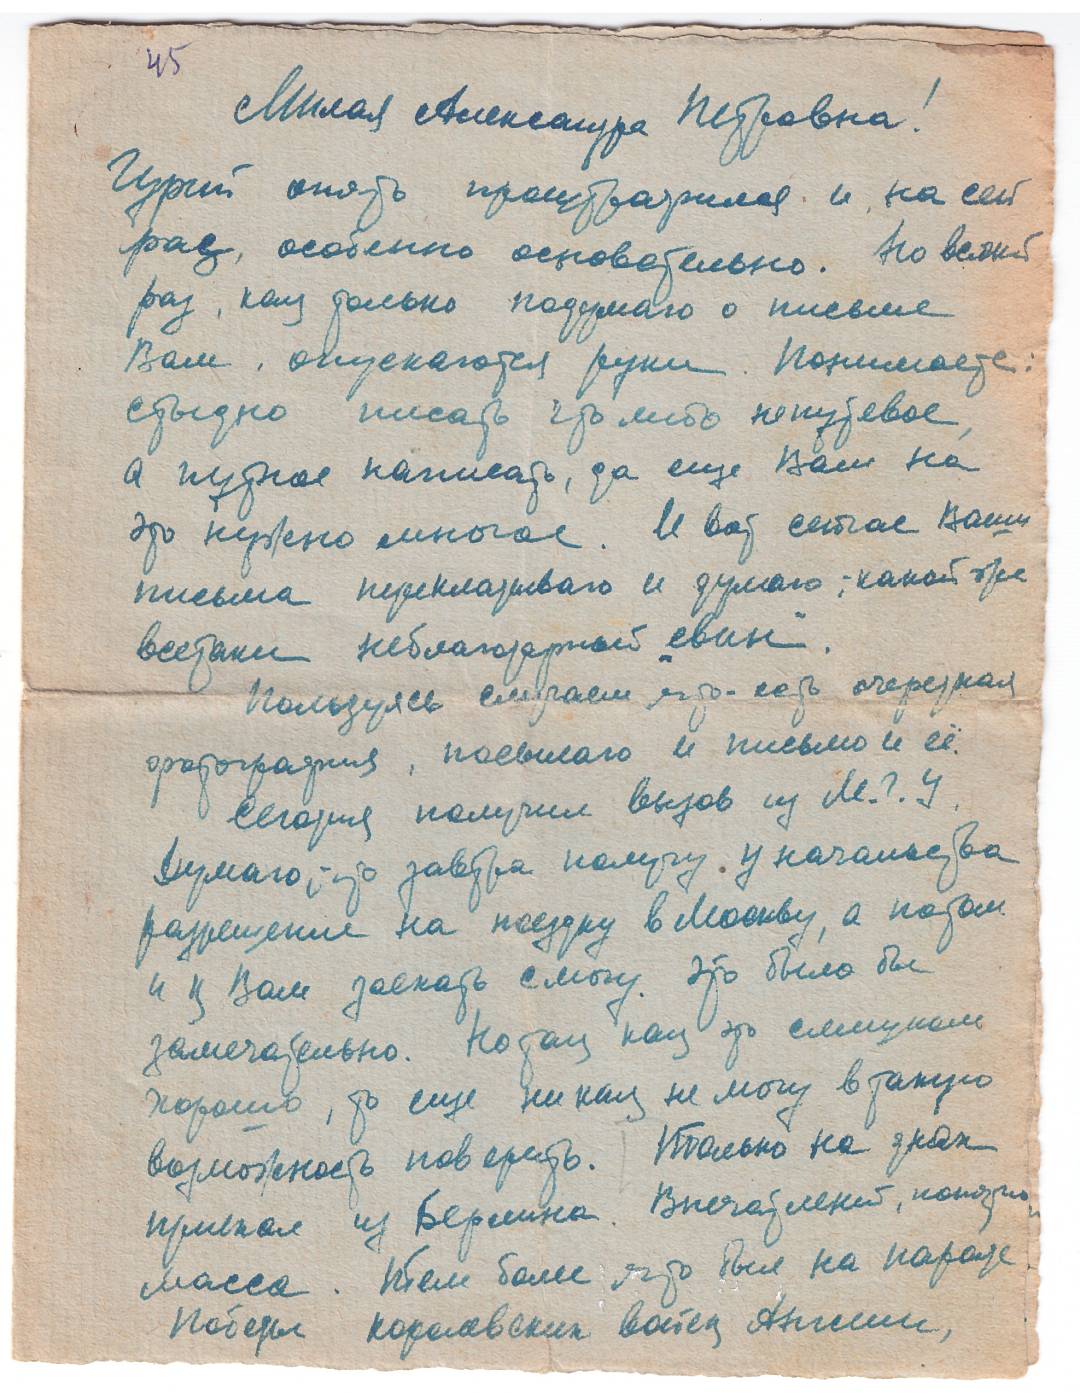 45
Милая Александра Петровна!
Гурий опять проштрафился и, на сей
раз, особенно основательно. Но всякий
раз, как только подумаю о письме
Вам, опускаются руки. Понимаете:
стыдно писать что либо непутевое,
а путное написать, да еще Вам на
это нужно многое. И вот сейчас Ваши
письма перекладываю и думаю; какой же
всетаки неблагодарный „свин".
Пользуясь случаем что есть очередная
фотография, посылаю и письмо и её.
Сегодня получил вызов из М.Г.У.
Думаю, что завтра получу у начальства
разрешение на поездку в Москву, а потом
и к Вам заехать смогу. Это было бы
замечательно. Но так как это слишком
хорошо, то еще никак не могу в такую
возможность поверить. Только на днях
приехал из Берлина. Впечатлений, понятно,
масса. Тем более что был на параде
Победы королевских войск Англии,